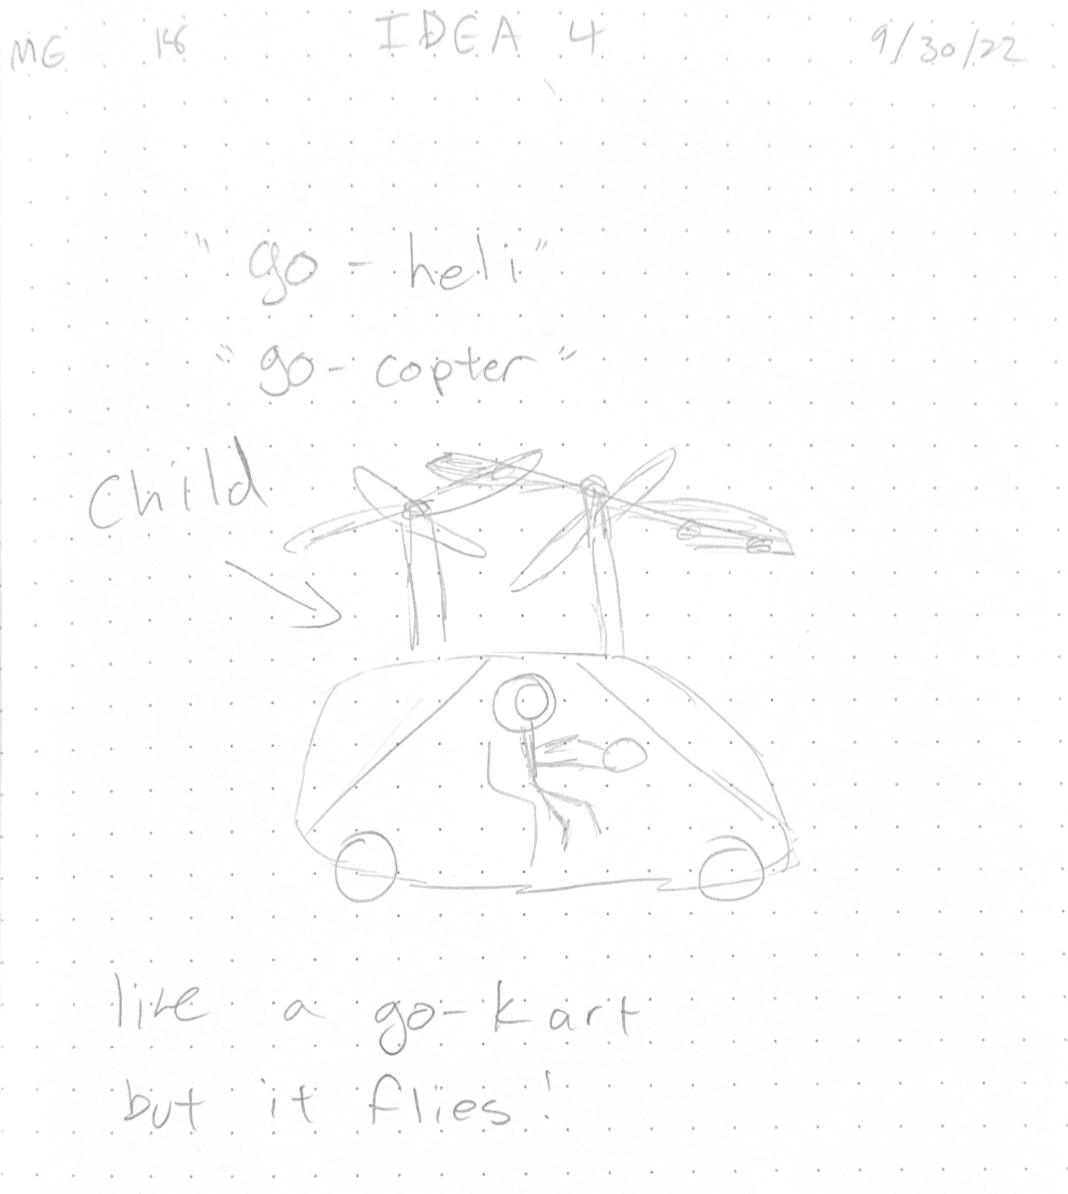 MG 18 IDEA 4 9/30/22
"go-heli"
"go-copter"
Child
like a go-kart
but it flies!